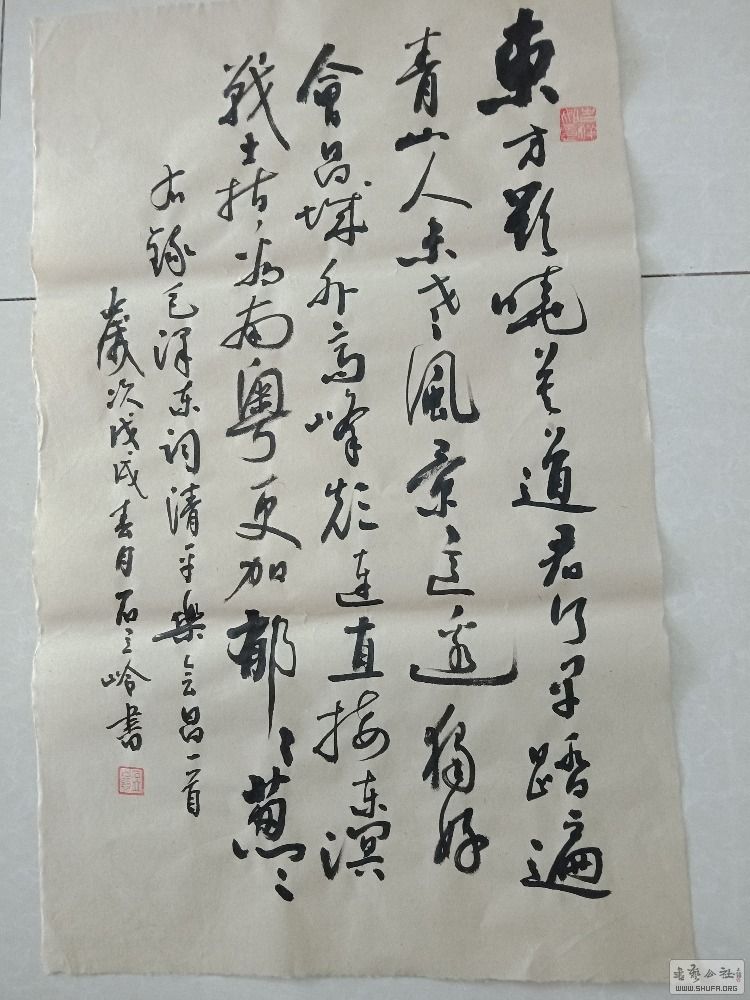 東方欲曉莫道君行早踏遍
青山人未老風景這邊獨好
會昌城外高峰顛連直接東溟
戰士指看南粵更加郁々蔥々
右錄毛澤東詞清平樂會昌一首
歲次戊戌春月石立岭書
書藝公社
WWW.SHUFA.ORG